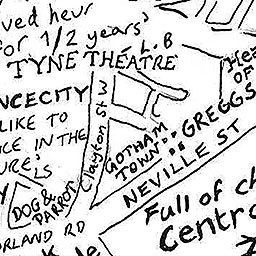 ved heur
for 1/2 years'
L.B
TYNE THEATRE
Hea
OF
NCECITY
LIKE TO
CE IN THE
URE'
LS
Clayton St W
GOTHAM
TOWN
GREGGS
NEVILLE ST
Y
DOG &
PARROT
Full of ch
Centra
ORLAND RD